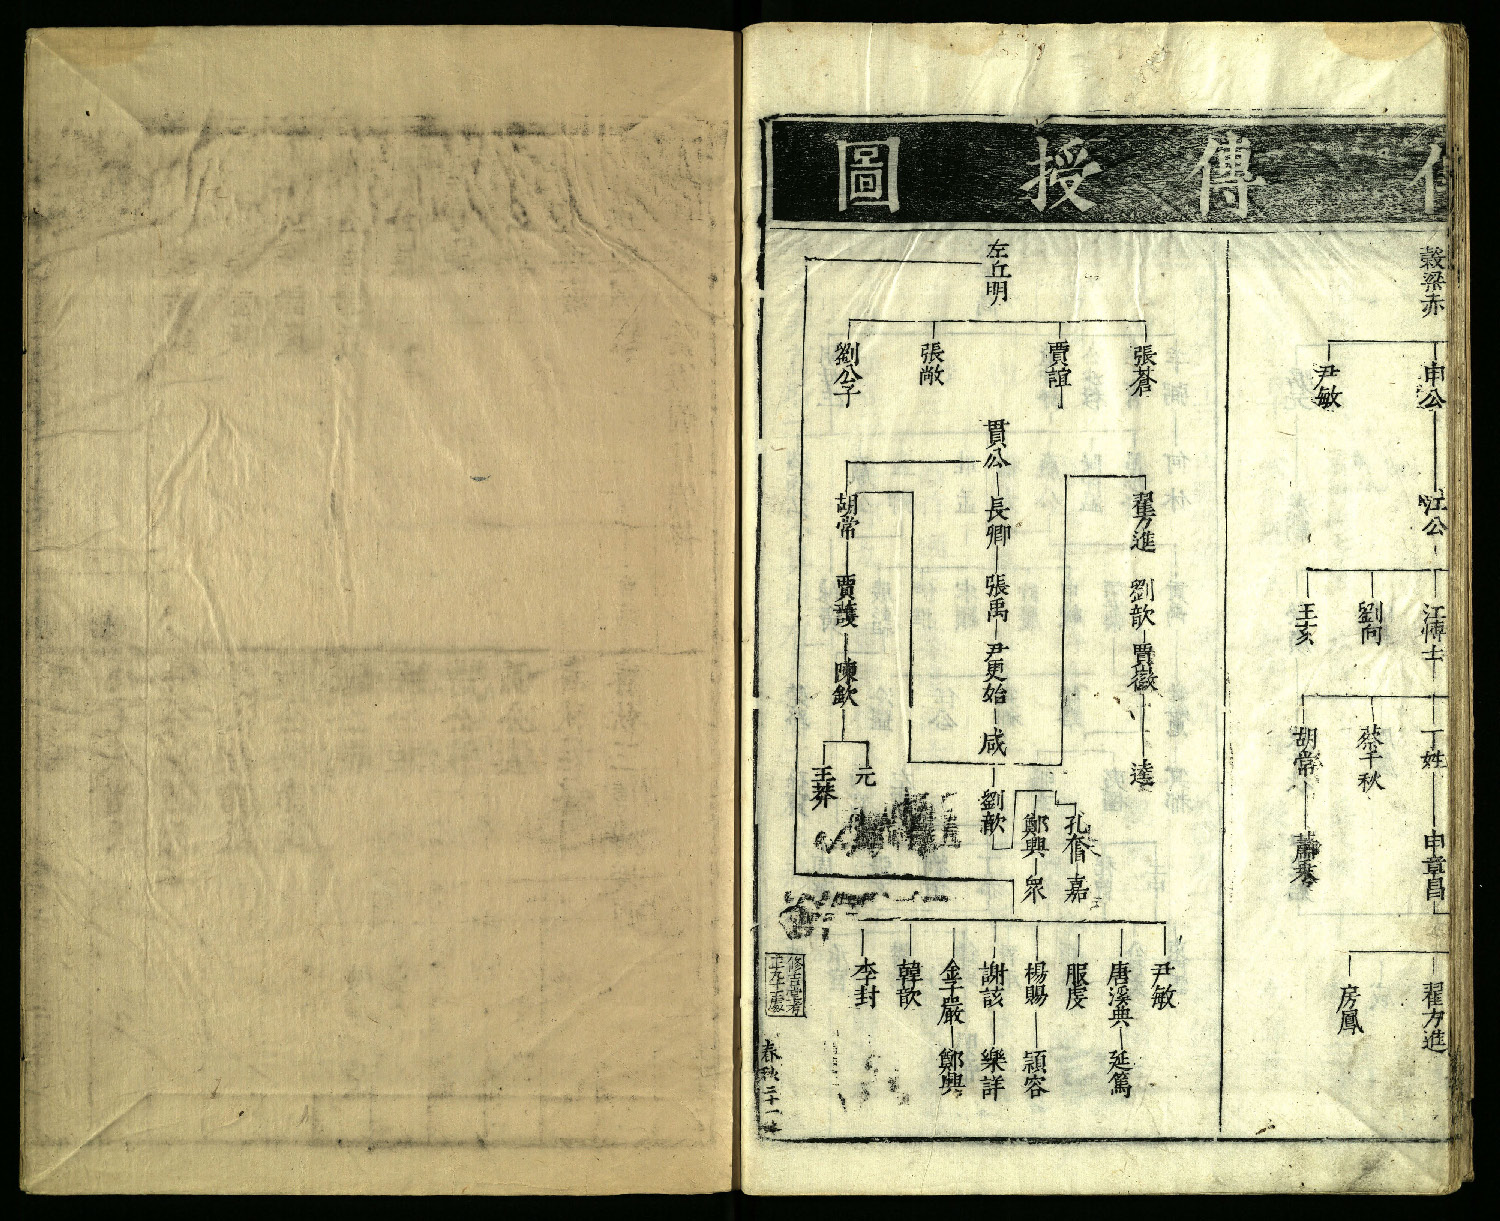 傳授圖
穀梁赤
申公
尹敏
江公
江博士
劉向
王亥
丁姓
蔡千秋
胡常
申章昌
蕭秉
翟方進
房鳳
左丘明
張蒼
賈誼
張敞
劉公子
貫公
長卿
張禹
尹更始
咸
劉歆
翟方進
劉歆
賈徽
逵
胡常
賈護
陳欽
元
王莽
孔奮
嘉
鄭興
眾
尹敏
唐溪典
延篤
服虔
楊賜
潁容
謝該
樂詳
金子嚴
鄭興
韓歆
李封
春秋二十一